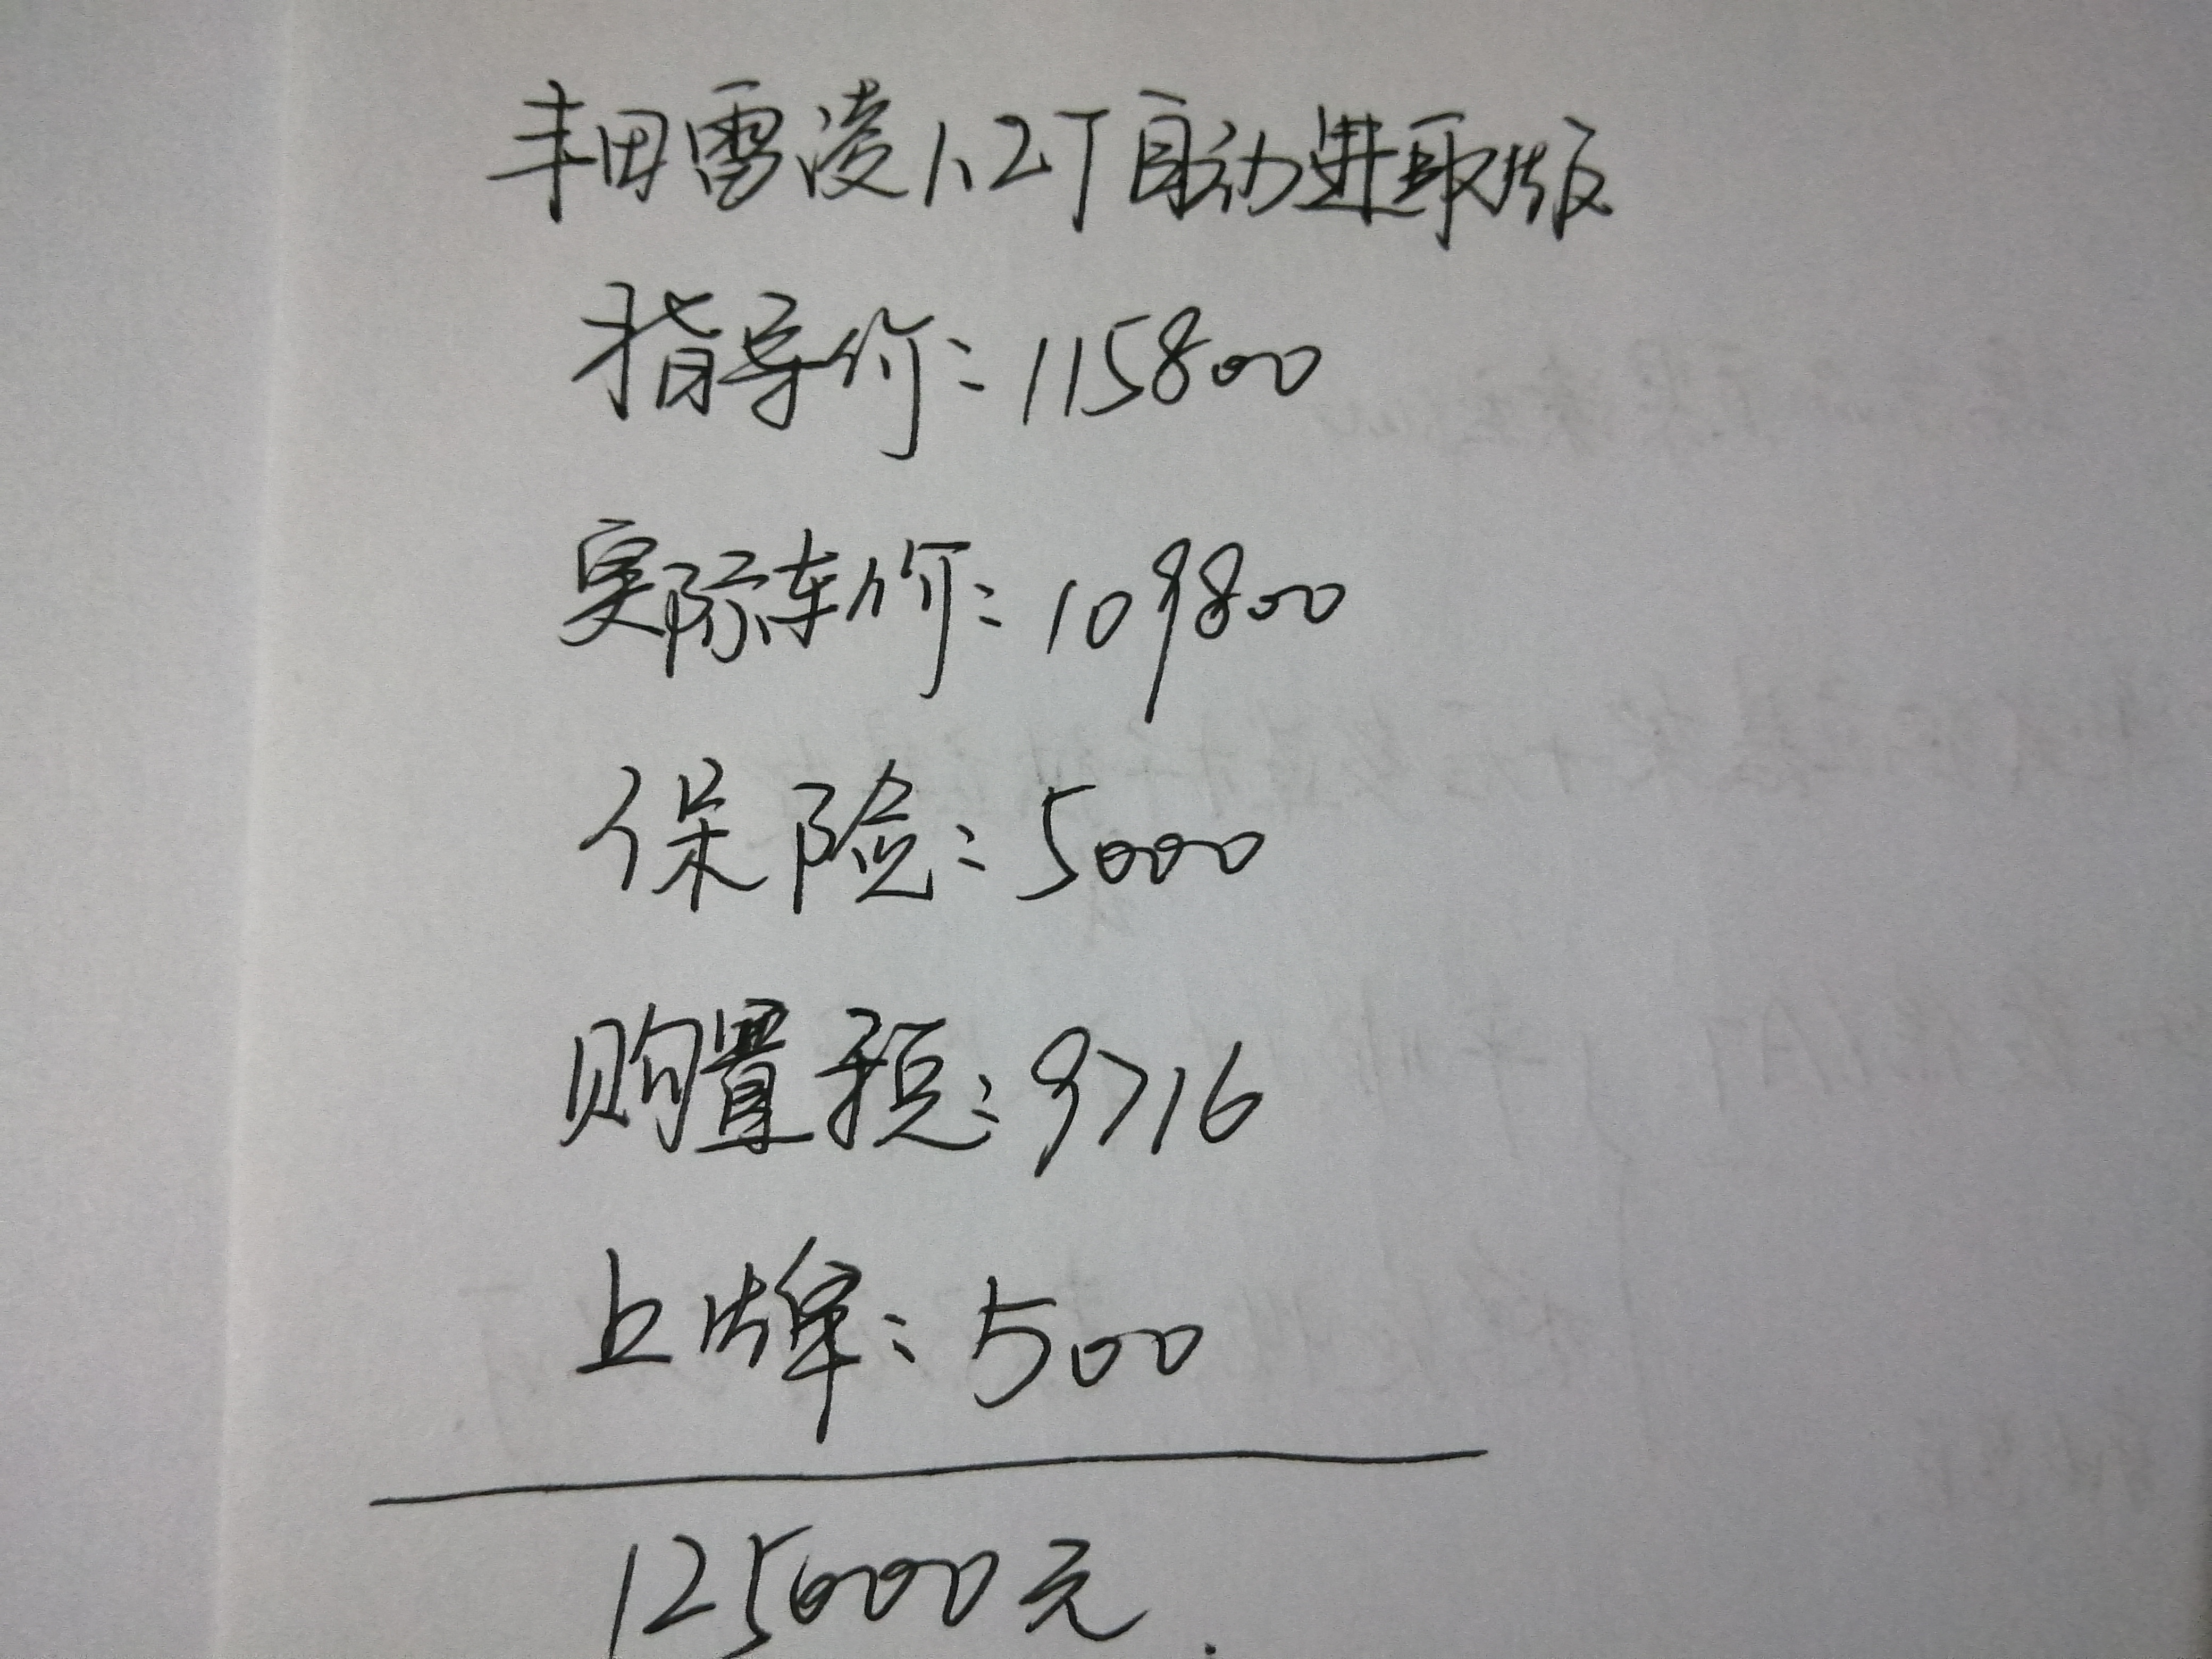 丰田雷凌1.2T自动进取版
指导价：115800
实际车价：109800
保险：5000
购置税：9716
上牌：500
125000元.